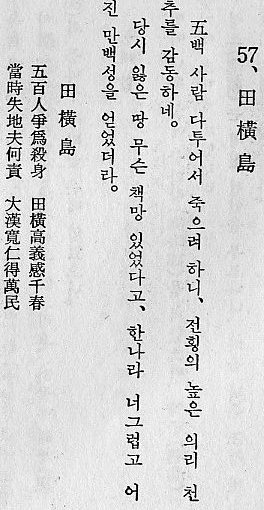 57、田橫島
五백 사람 다투어서 죽으려 하니、전횡의 높은 의리 천
추를 감동하네。
당시 잃은 땅 무슨 책망 있었다고、한나라 너그럽고 어
진 만백성을 얻었더라。
田橫島
五百人爭爲殺身 田橫高義感千春
當時失地夫何責 大漢寬仁得萬民